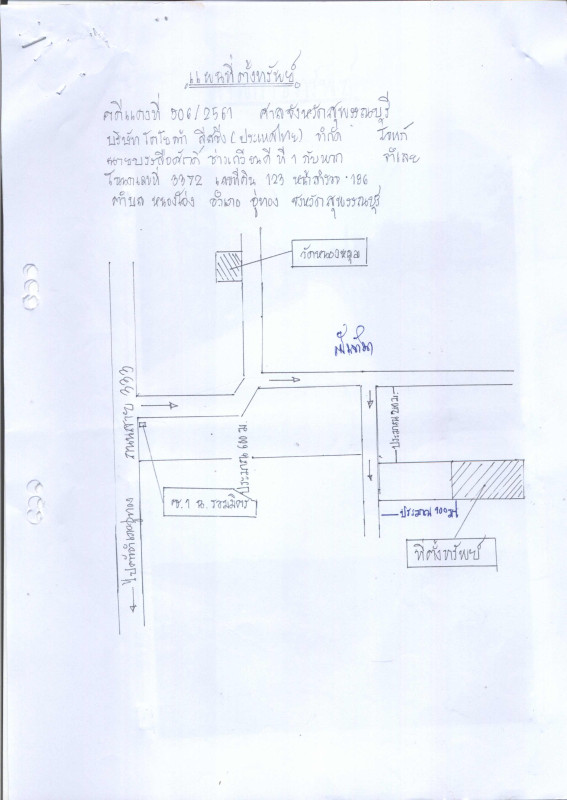 แผนที่ตั้งทรัพย์
คดีแดงที่ 506/2561 ศาลจังหวัดสุพรรณบุรี
บริษัท โตโยต้า ลีสซิ่ง (ประเทศไทย) จำกัด โจทก์
ที่ 1 กับพวก จำเลย
โฉนดเลขที่ 3372 เลขที่ดิน 123 หน้าสำรวจ 186
ตำบล หนองโอ่ง อำเภอ อู่ทอง จังหวัดสุพรรณบุรี
วัดหนองหลุม
ถนนสาย 333
ประมาณ 600 ม.
ประมาณ 200 ม.
ซ.1 น.รวมมิตร
ประมาณ 100 ม.
ที่ตั้งทรัพย์